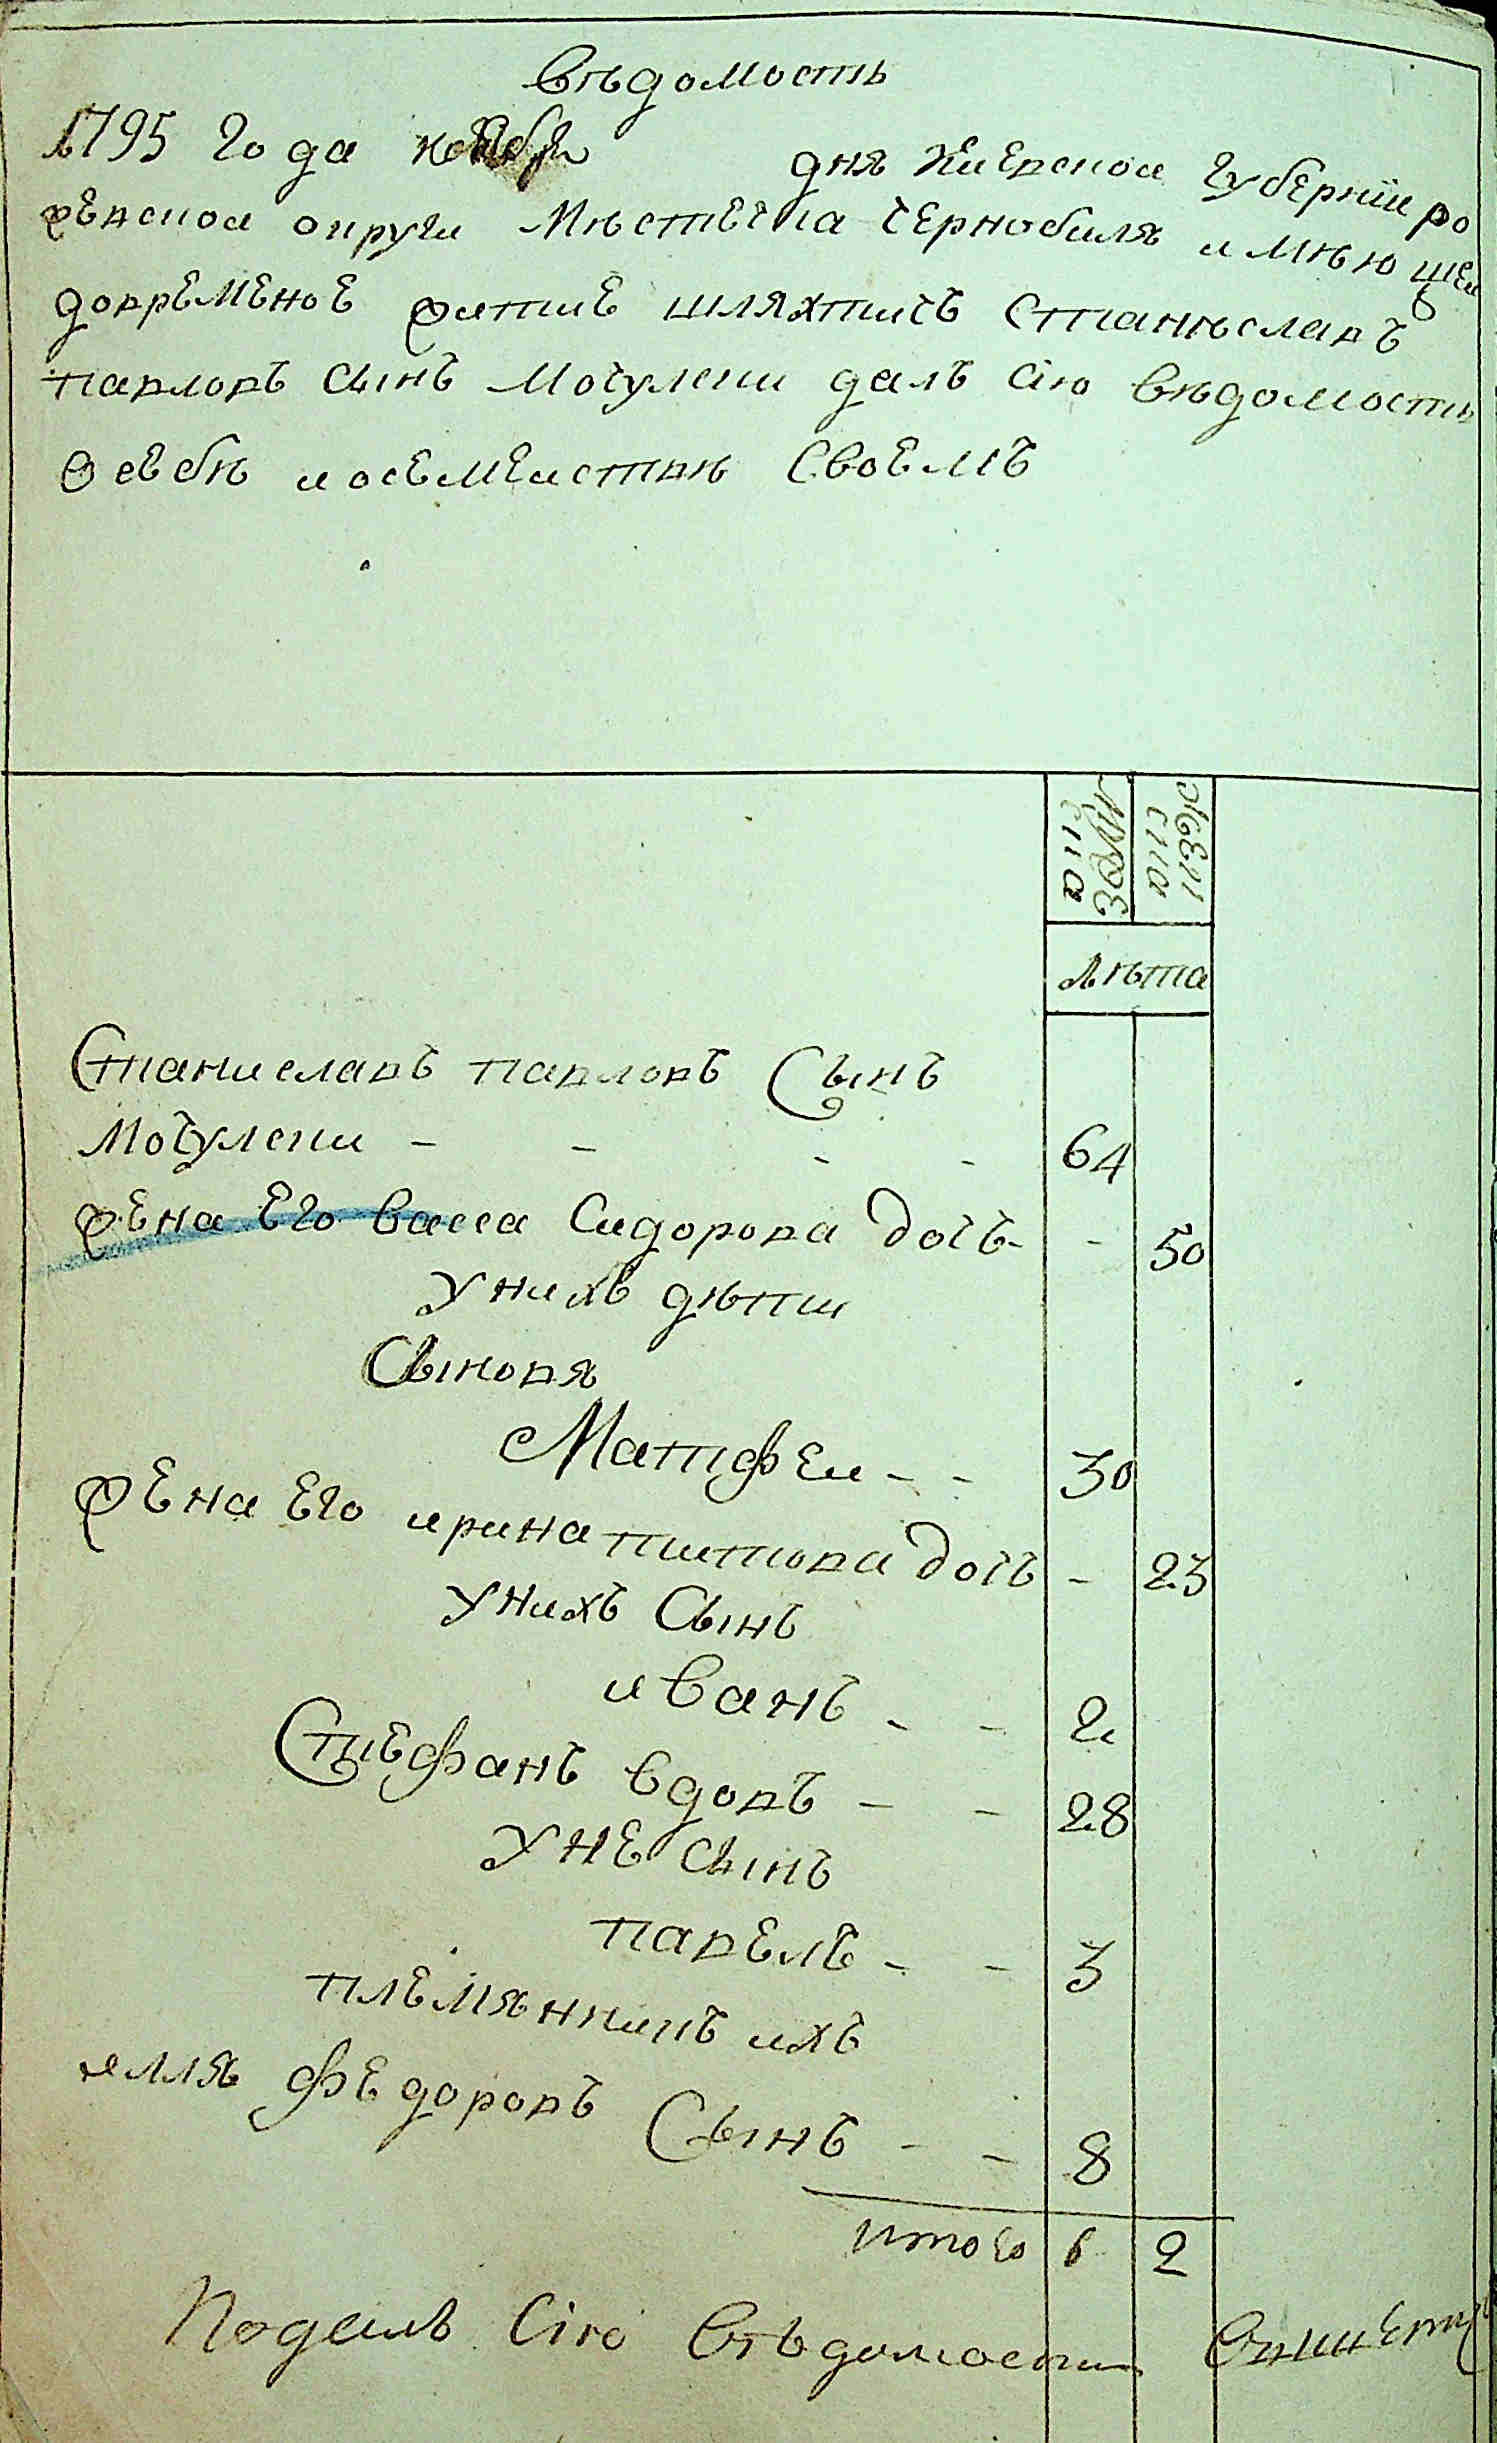 Вѣдомость
1795 года ноября дня Киевской губернїи ро
жевской округи мѣстечка Чернобиля имѣющей
довремѣное житие шляхтичъ Станѣславъ
павловъ сынъ Мочулски далъ сію вѣдомость
о себѣ и осемействѣ своемъ
Мужеска
женска
лѣта
Станиславъ павловъ Сынъ
Мочулски - - - - 64
жена его васса Сидорова дочъ - - 50
У нихъ дѣти
Сыновя
Матфеи - - 30
жена его ирина титова дочъ - 23
У нихъ Сынъ
иванъ - - 2
Стефанъ вдовъ - - 28
У не сынъ
павелъ - - 3
племянникъ ихъ
илля федоровъ Сынъ - - 8
итого 6 2
Подалъ сію вѣдомость